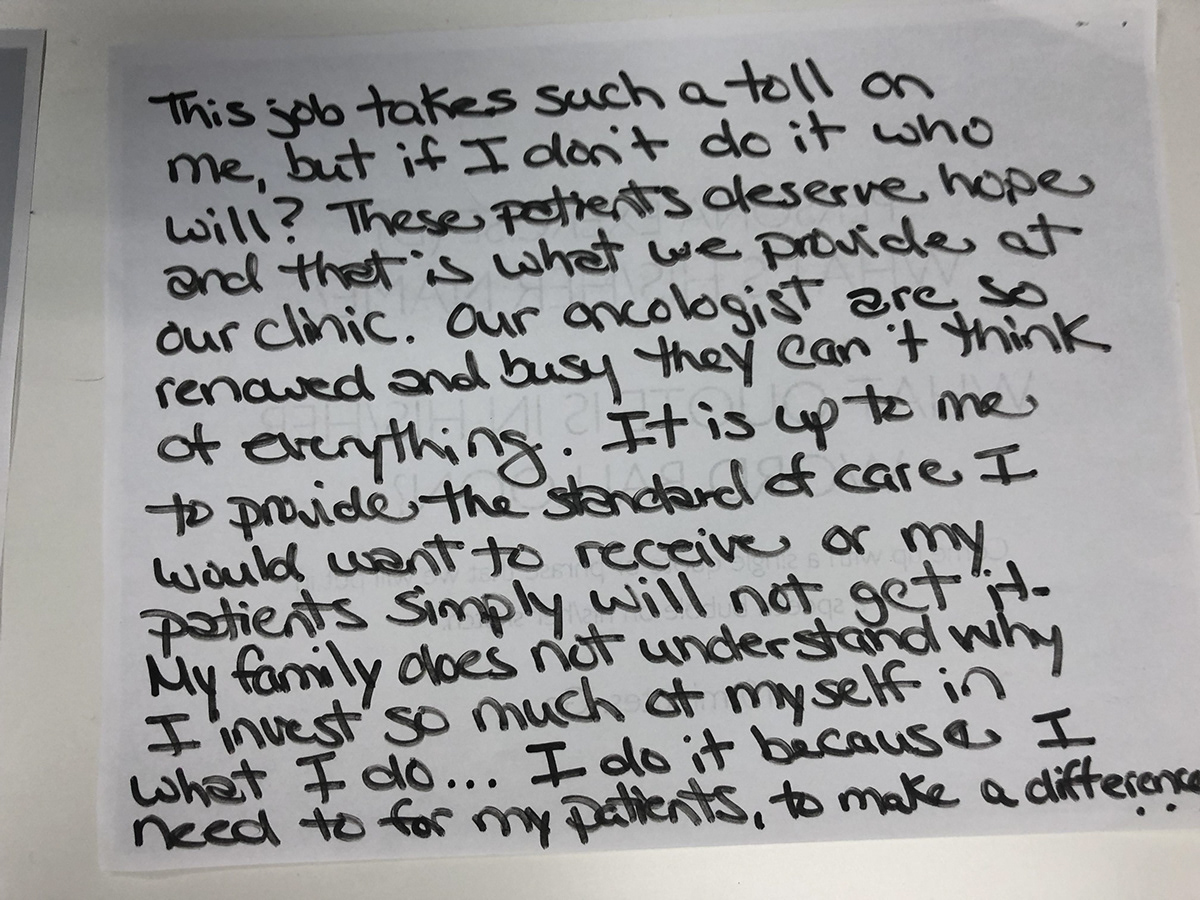 This job takes such a toll on
me, but if I don't do it who
will? These patients deserve hope
and that is what we provide at
our clinic. Our oncologist are so
renowed and busy they can't think
of everything. It is up to me
to provide the standard of care I
would want to receive or my
patients simply will not get it.
My family does not understand why
I invest so much of myself in
what I do... I do it because I
need to for my patients, to make a difference